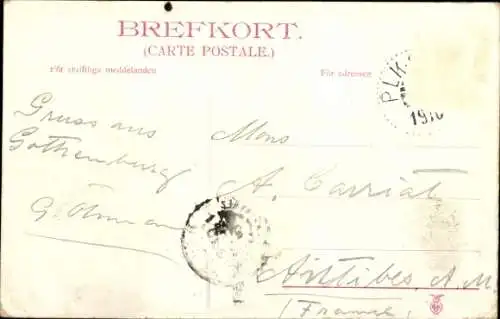 BREFKORT.
(CARTE POSTALE.)
För skriftliga meddelanden
För adressen
PLK
1910
Gruss aus
Gothenburg
Mons
A. Carriat
Antibes. A. M
(France)